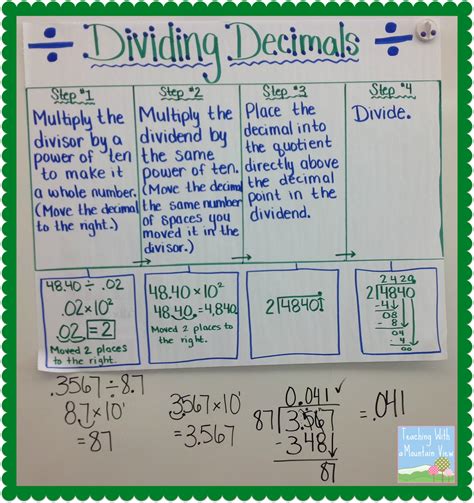 ÷ Dividing Decimals ÷
Step #1
Multiply the
divisor by a
power of ten
to make it
a whole number.
(Move the decimal
to the right.)
Step #2
Multiply the
dividend by
the same
power of ten.
(Move the decimal
the same number
of spaces you
moved it in the
divisor.)
Step #3
Place the
decimal into
the quotient
directly above
the decimal
point in the
dividend.
Step #4
Divide.
48.40 ÷ .02
.02 × 10²
.02 = 2
Moved 2 places
to the right.
48.40 × 10²
48.40. = 4,840.
Moved 2 places to
the right.
2)4840.
2420.
2)4840
-4
08
- 8
04
- 4
00
.3567 ÷ 8.7
8.7 × 10¹
= 87
.3567 × 10¹
= 3.567
0.041
87)3.567
-348
87
= .041
Teaching With
a Mountain View